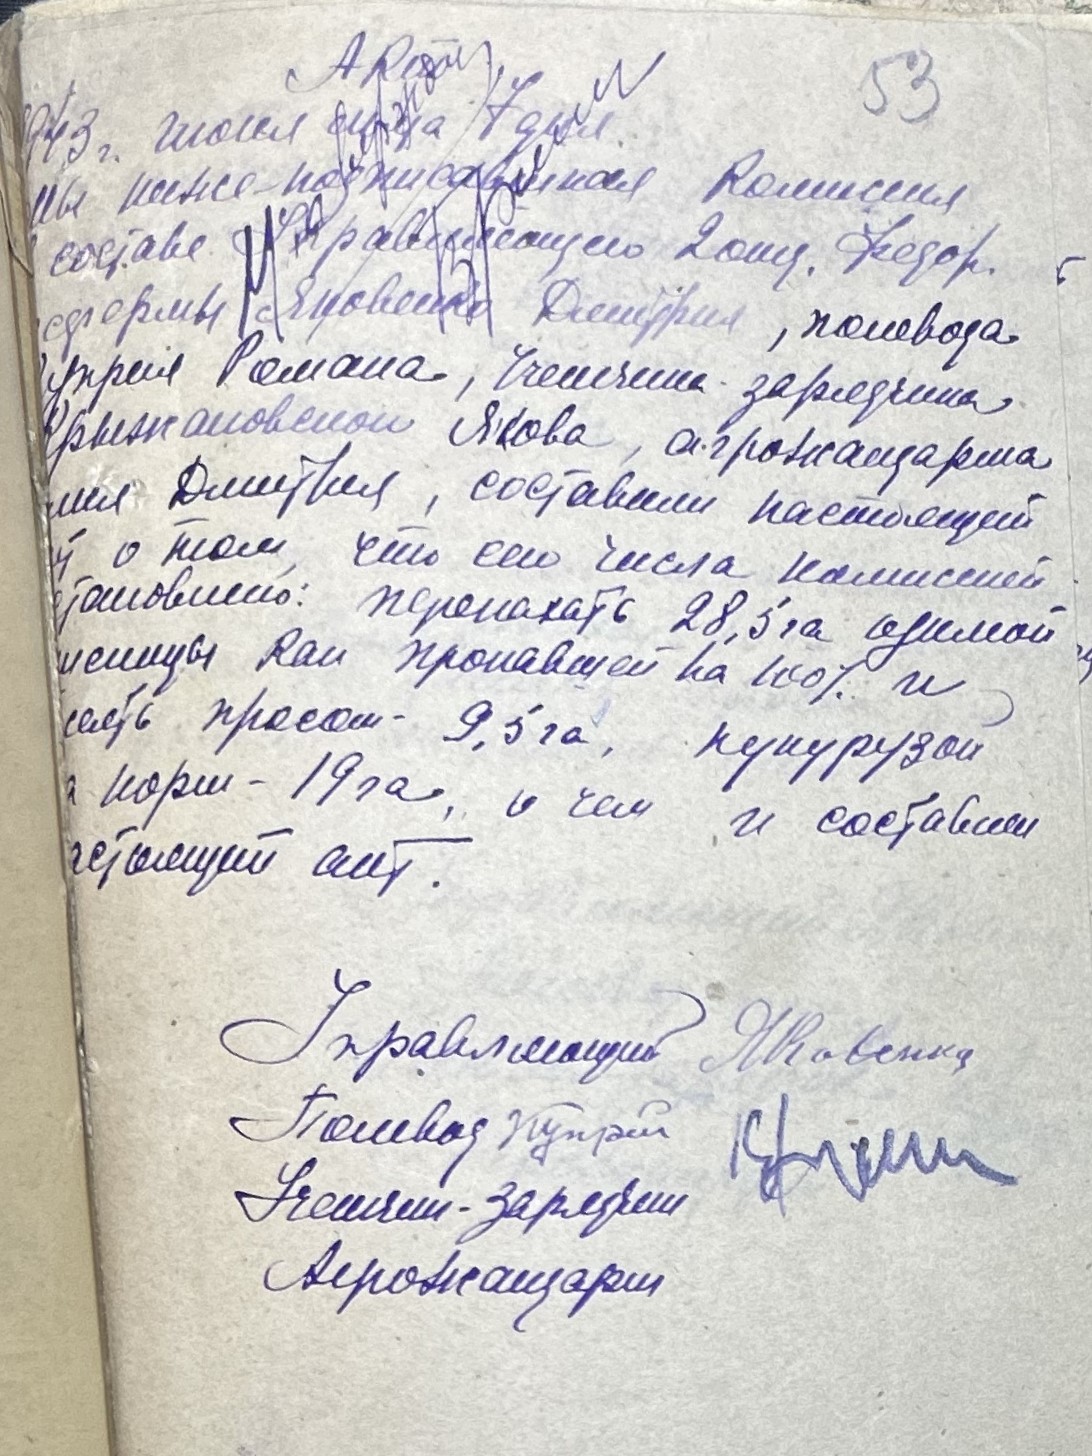 Акт
53
943 г. июня м-ца 7 дня
мы ниже-подписавшиеся Комиссия
составе Управляющего 2 общ. Федор.
едфермы Яковенко Дмитрия, полевода
уприя Романа, Учетчика-зарядчика
Крыжановской Якова, агрожандарма
Дмитрия, составили настоящий
о том, что сего числа комиссией
становлено: перепахать 28,5 га озимой
шеницы как пропавшей на 100% и
сеять просом - 9,5 га, кукурузой
а корм - 19 га, о чем и составлен
астоящий акт.
Управляющий Яковенко
Полевод Куприй
Учетчик-зарядчик
Агрожандарм